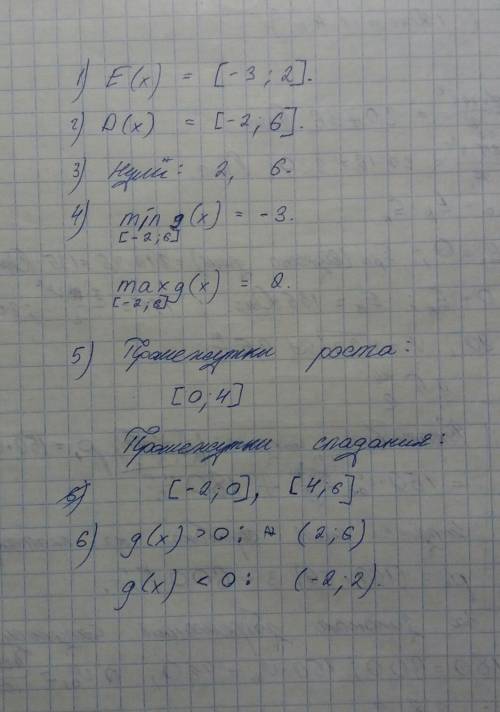 1) E(x) = [-3; 2].
2) D(x) = [-2; 6].
3) Нули: 2, 6.
4) min g(x) = -3.
[-2; 6]
max g(x) = 2.
[-2; 6]
5) Промежутки роста:
[0; 4]
Промежутки спадания:
[-2; 0], [4; 6]
6) g(x) > 0: (2; 6)
g(x) < 0: (-2; 2).